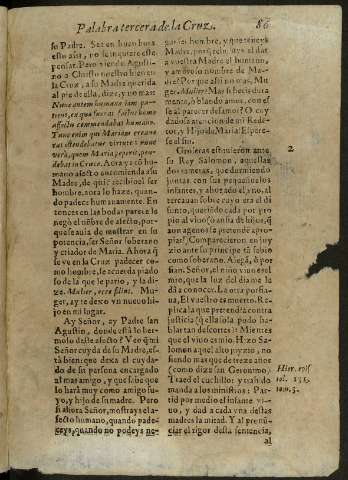 Palabra tercera de la Cruz. 86
su Padre. Sea en buen hora
esto assi, no le inquiere este
pensar. Pero viendo Agustino
a Christo nuestro bien en
la Cruz, a su Madre querida
al pie de ella, dize, y no mas:
Nunc autem humana iam patiens,
ex qua fuerat factus homo
affectu commendabat humano.
Tunc enim qui Mariam creauerat
ostendebatur virtute: nunc
verò, quem Maria peperit, pendebat
in Cruce. Aora ya cõ humano
afecto encomienda a su
Madre, de quiẽ recibio el ser
hombre, aora lo haze, quando
padece humanamente. En
tonces en las bodas parece le
negò el nõbre de afecto, porque
se auia de mostrar en su
potencia, ser Señor soberano
y criador de Maria. Ahora q̃
se ve en la Cruz padecer como
hombre, le acuerda piadoso
de la que le pario, y la dize.
Mulier, ecce filius. Muger,
ay te dexo vn nueuo hijo
en mi lugar.
Ay Señor, ay Padre san
Agustin, donde està lo hermoso
deste afecto? Veo q̃ mi
Señor cuyda de su Madre, està
bien que dexa el cuydado
de su persona encargado
al mas amigo, y que sabe que
lo harà muy como amigo suyo,
y hijo de su madre. Pero
si ahora Señor, mostrays el afecto
humano, quando padeceys,
quando no podeys negar
ser hombre, y que teneys
Madre, porque le aveis el dar
a vuestra Madre el humano,
y amoroso nombre de Madre?
Por que assi no mas, Muger,
Mulier? Mas si hecis dura
mente, ò blando amor, con esse
al parecer desamor? O cuydadosa
atencion de mi Redetor,
y Hijo de Maria! Esperese
el sin.
Cuydosas estuuieron ante
su Rey Salomon, aquellas
dos rameras, que durmiendo
juntas con sus pequeñuelos
infantes, y ahogado el vno, altercauan
sobre cuyo era el difunto,
queriẽdo cada por propio
al viuo (ò ansia de hijos, q̃
aun agenos se pretendẽ apropiar!)
Comparecieron en juyzio
ante su principe tã sabio
como soberano. Alegã, ò porfian.
Señor, el niño viuo es el
mio, que la luz del dia me la
da a conocer. La otra porfiaua,
El vuestro es muerto. Replica
la que pretendia contra
justicia (q̃ ella sola pudo hablar
tan descortes:) Mientes
que el viuo es mio. Hizo Salomon
aquel alto juyzio, no
siendo mas que de treze años
(como dize san Geronimo)
Traed el cuchillo: y traido,
manda a los ministros: Partid
por medio el infante viuo,
y dad a cada vna destas
madres la mitad. Y al pronũciar
el rigor desta sentencia,
al
2
Hier. epist
ad. 131.
tom. 3.